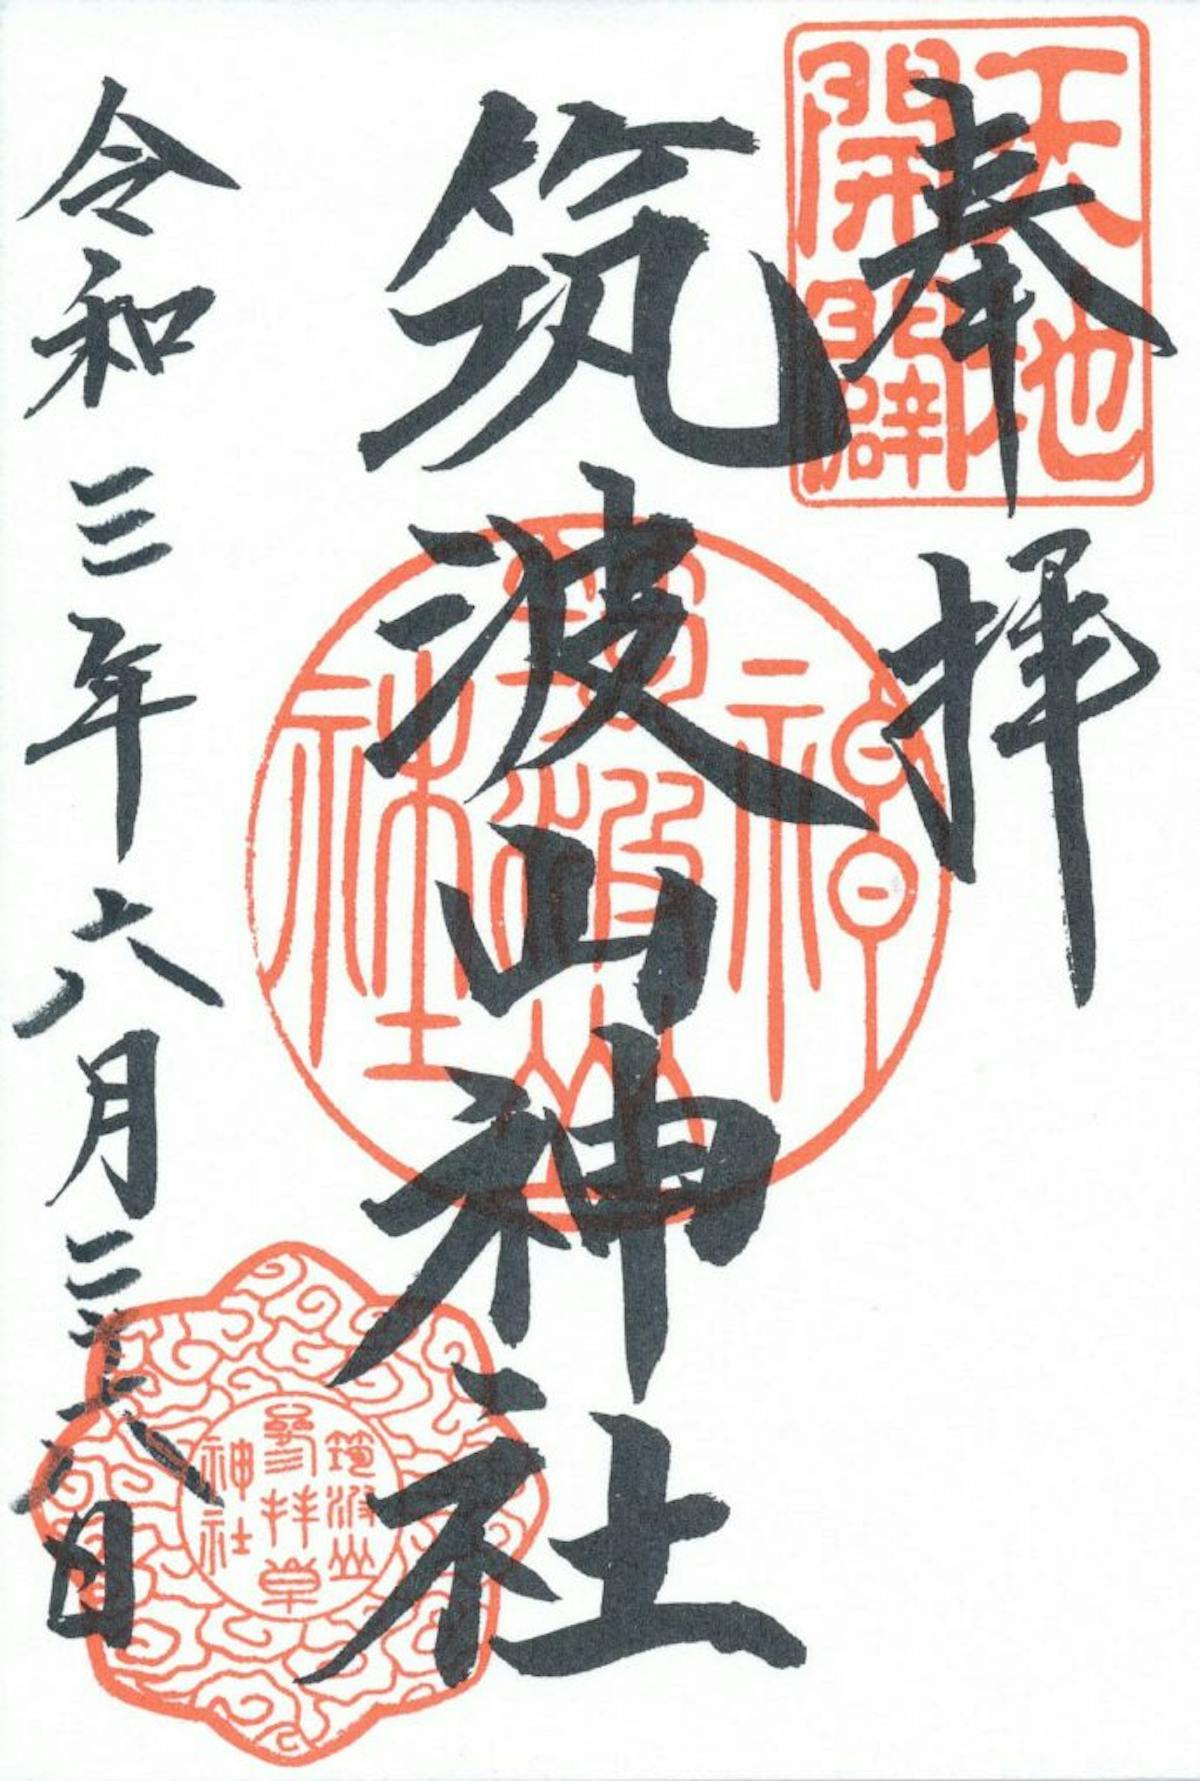 奉拝
天地
開闢
筑波山神社
筑波山
神社
令和三年六月二十六日
筑波山
参拝章
神社